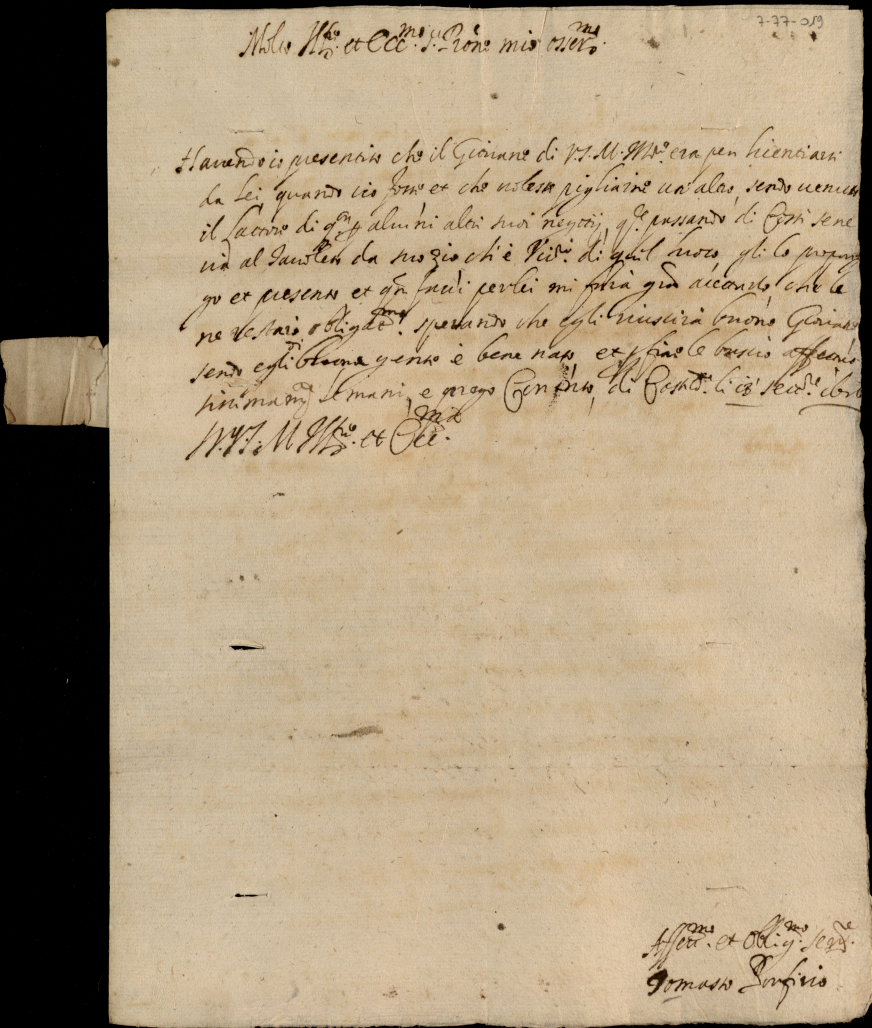 7-77-019
Molto Ill.re et Ecc.mo S.r Prone mio osser.mo
Havendo io presentito che il Giovane di V.S.M. Ill.re era per licentiarsi
da Lei, quando ciò fosse et che volesse pigliarne un altro, sendo venuto
il lattore di q.sta p alcuni altri suoi negotij, q.le passando di Costì se ne
và al da suo zio ch'è Vic.rio di quel luoco, gli lo propon
go et presento et q.n facci per lei mi farà gra accettarlo, che le
ne restarò obligat.mo sperando che egli riuscirà buono Giovane
sendo egli di buona gente è bene nato, et p fine le bascio affectio
sissimam.te le mani, e prego Contento, di li
D. V.S. M. Ill.re et Ecc.ma
Affett.mo et Oblig.mo Ser.re
Tomasso Porfirio